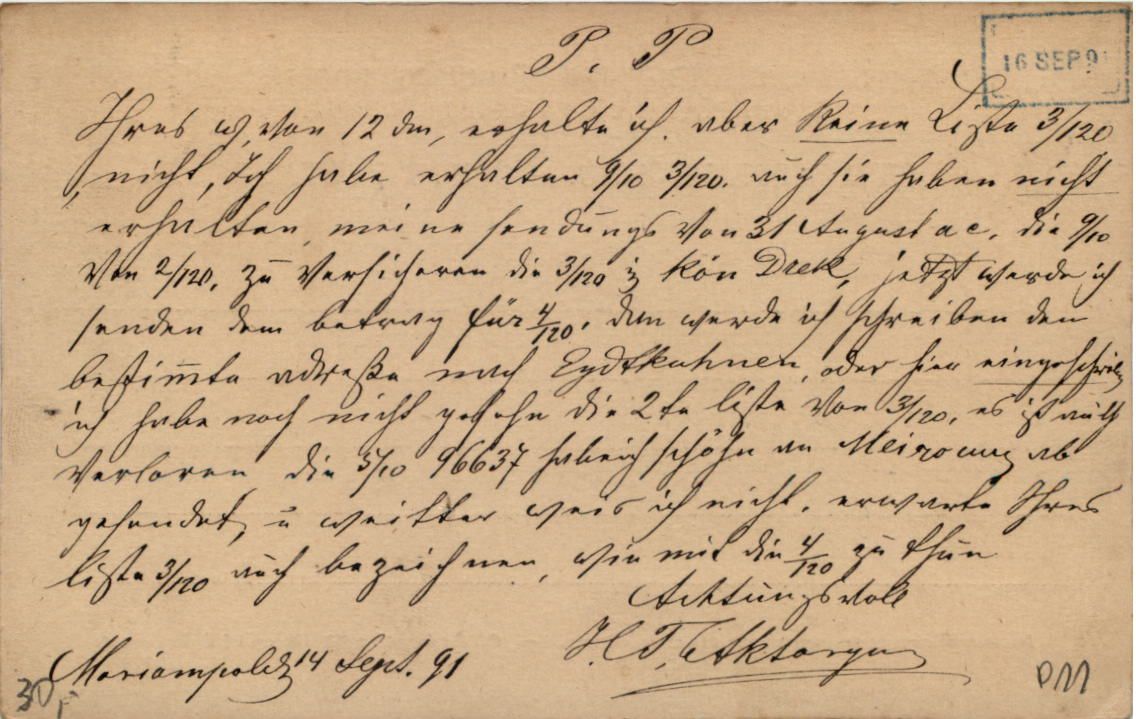 P. P
16 SEP 9
Ihres von 12 dm, erhalte ich. aber Keine Liste 3/120
nicht, Ich habe erhalten 9/10 3/120. auch sie haben nicht
erhalten, meine sendungs Von 31 August a c. die 9/10
Von 2/120, zu Versicheren die 3/120 Kön Drek, jetzt werde ich
senden dem betrag für 4/120, den werde ich schreiben den
bestim̅te adreße nach Eydtkuhnen, oder hier
ich habe noch nicht gesehn die 2te liste Von 3/120, es ist auch
Verloren die 96637 habe ich schöhn an ab
gesendet, u weitter weis ich nicht. erwarte Ihres
liste 3/120 auch bezeichnen, wie mit die 4/120 zu thun
Achtungsvoll
Mariampol 14 Sept. 91
30